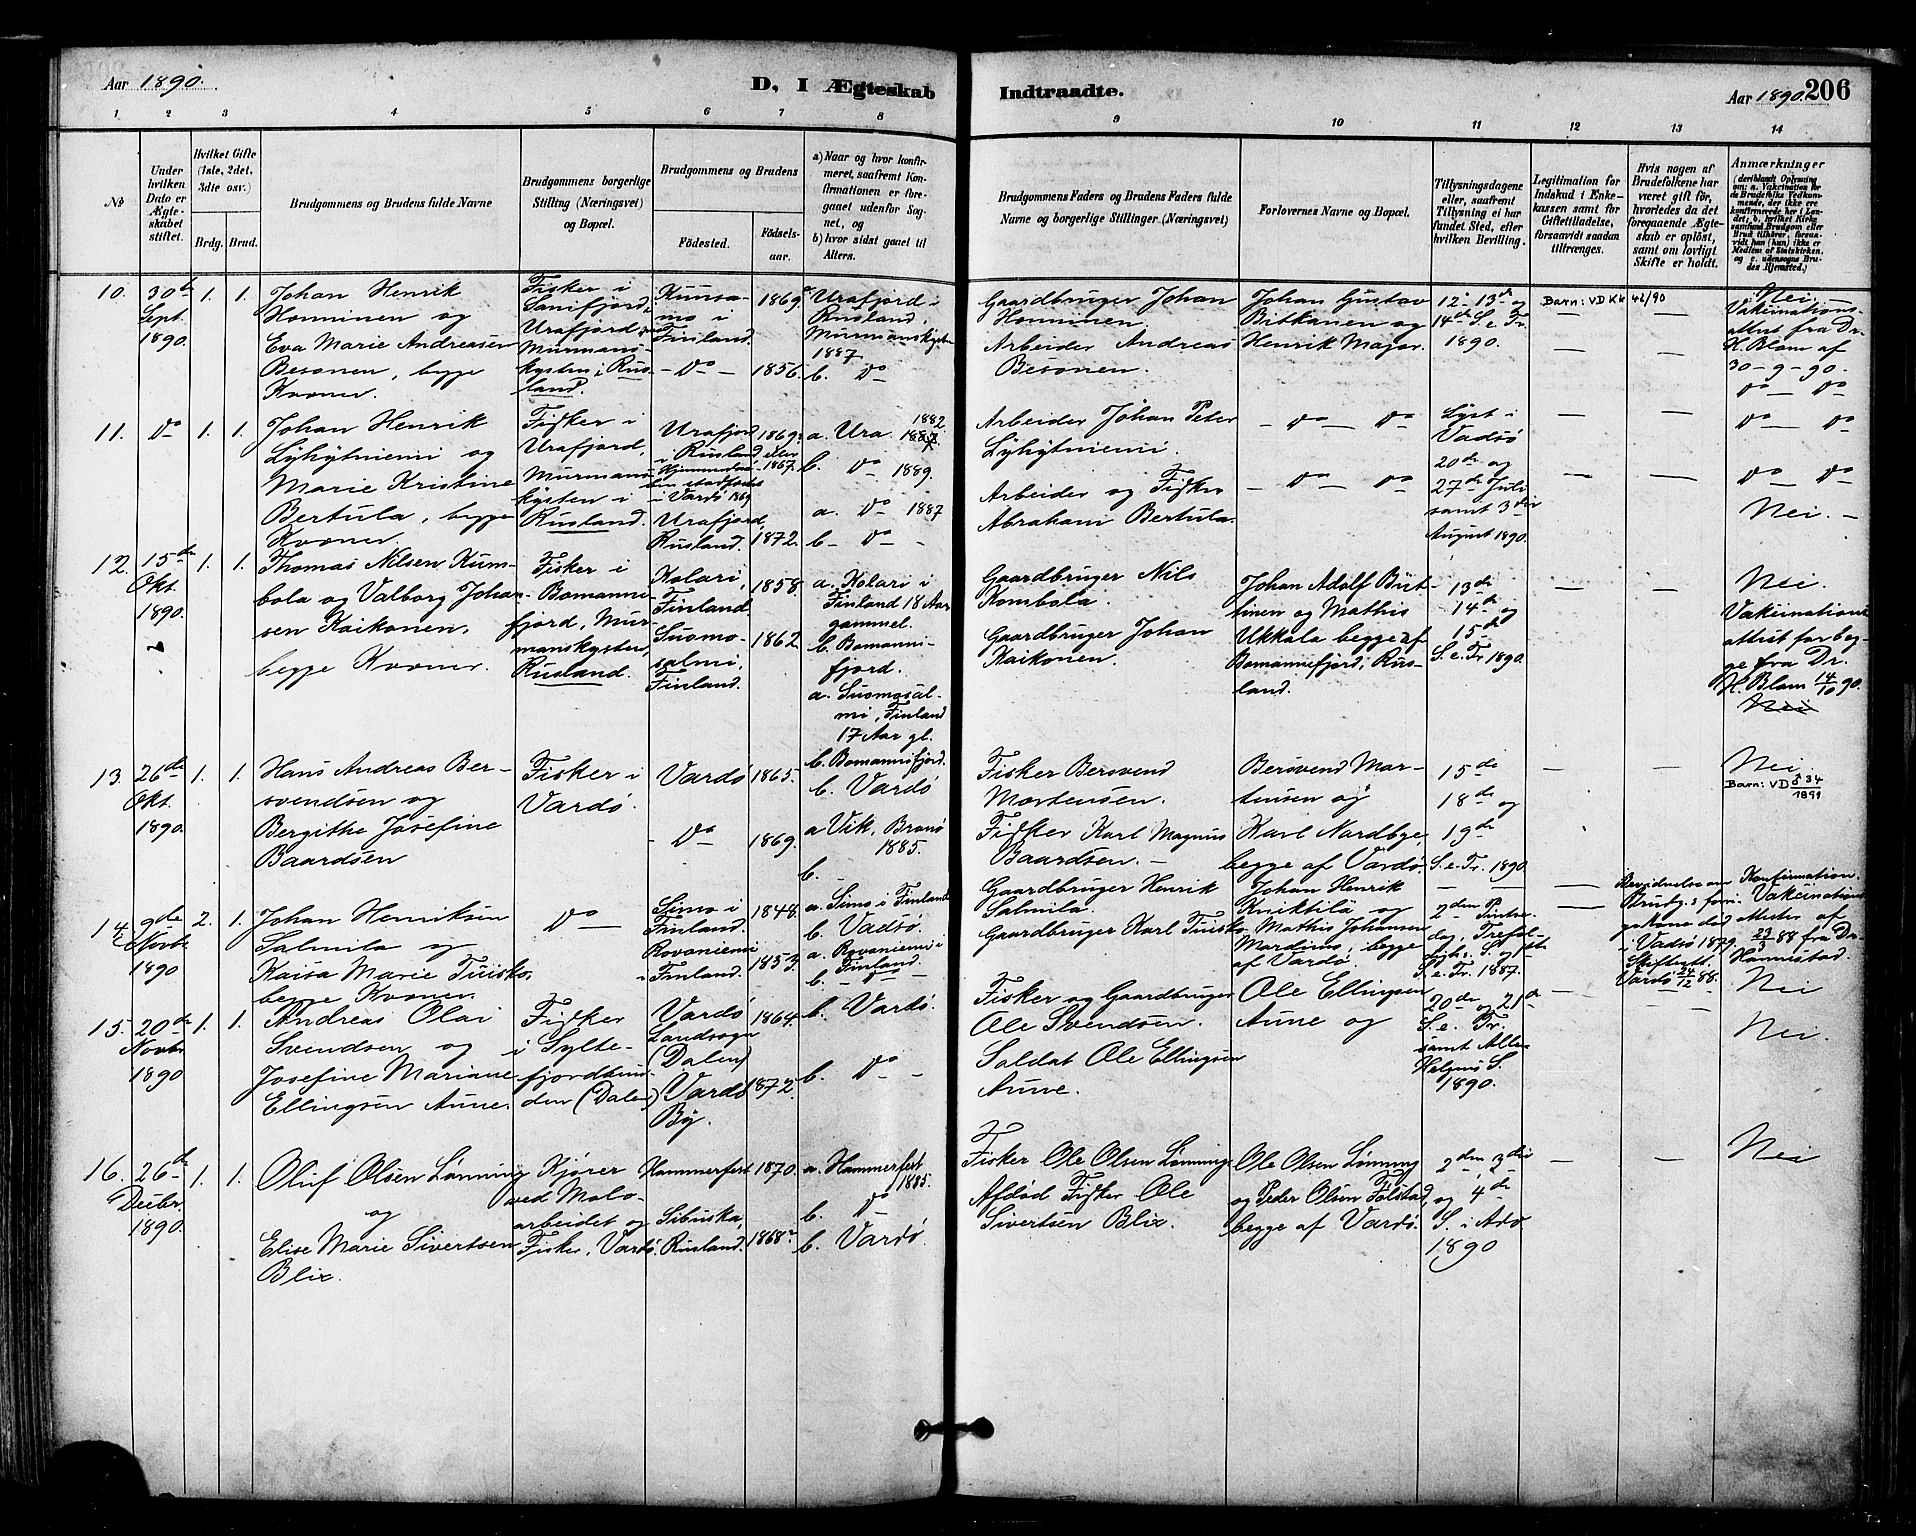 Aar 1890.
D, I Ægteskab
Indtraadte.
Aar 1890. 206
1 2 3 4 5 6 7 8
9 10 11 12 13 14
No
Under hvilken Dato er Ægteskabet stiftet.
Hvilket Gifte (1ste, 2det, 3die osv.)
Brdg. Brud.
Brudgommens og Brudens fulde Navne
Brudgommens borgerlige Stilling (Næringsvei) og Bopæl.
Brudgommens og Brudens
Födested.
Födselsaar.
a) Naar og hvor konfirmeret, saafremt Konfirmationen er foregaaet udenfor Sognet, og
b) hvor sidst gaaet til Alters.
Brudgommens Faders og Brudens Faders fulde Navne og borgerlige Stillinger (Næringsvei)
Forlovernes Navne og Bopæl.
Tillysningsdagene eller, saafremt Tillysning ei har fundet Sted, efter hvilken Bevilling.
Legitimation for Indskud i Enkekassen samt for Giftetilladelse, forsaavidt saadan tiltrænges.
Hvis nogen af Brudefolkene har været gift för, hvorledes da det foregaaende Ægteskab er oplöst, samt om lovligt Skifte er holdt.
Anmærkninger
(deriblandt Oplysning om: a. Vakcination for de Brudefolks Vedkommende, der ikke ere konfirmerede her i Landet; b. hvilket Kirkesamfund Brudgom eller Brud tilhører, forsaavidt han (hun) ikke er Medlem af Statskirken, og c. udensogns Brudes Hjemsted.)
10. 30de Sept. 1890. 1. 1.
Johan Henrik
Honninen og
Eva Marie Andreasen
Besonen, begge
Kvæner.
Fisker i
Sanifjord,
Urafjord,
Murmans-
kysten i Rus-
land.
Kuusa-
mo i
Finland. 1869
— Do — 1856.
a. Urafjord i
Rusland,
Murmanskysten
1887
b. Do
Gaardbruger Johan
Honninen.
Arbeider Andreas
Besonen.
Johan Gustav
Bitkanen og
Henrik Major.
12. 13de og
14de S. e. Tr.
1890.
Barn: VD Kk 42/90
Nei —
Vakcinations-
attest fra Dr.
H. Blom af
30-9-90.
Do — Do
11. Do 1. 1.
Johan Henrik
Lyhytniemi og
Marie Kristine
Bertula, begge
Kvæner.
Fisker i
Urafjord,
Murmans-
kysten i
Rusland.
Urafjord
i Rusland 1869 eller 1867.
i Vardø 1869
Urafjord,
Rusland. 1872.
a. Ura. 1882
1887
b. Do 1889.
a. Do 1887
b — Do —
Arbeider Johan Peter
Lyhytniemi.
Arbeider og Fisker
Abraham Bertula.
— Do — Do
— Do — Do
Lyst i
Vadsø
20de og
27de Juli
samt 3die
August 1890.
Do — Do
Do — Do
Nei. —
12. 15de Okt. 1890. 1. 1.
Thomas Nilsen Kum-
bola og Valborg Johan-
sen Kaikonen,
begge Kvæner.
Fisker i
Bomanni-
fjord, Mur-
manskysten,
Rusland.
Kolari,
Finland 1858.
Suomo-
salmi,
Finland. 1862.
a. Kolari i
Finland 18 Aar
gammel.
b. Bomanni-
fjord.
a. Suomosal-
mi, Finland
17 Aar gl.
b. Bomannifjord.
Gaardbruger Nils
Kombola.
Gaardbruger Johan
Kaikonen.
Johan Adolf Birt-
tinen og Mathis
Ukkala begge af
Bomannifjord, Rus-
land.
13de
14de og
15de
S. e. Tr 1890.
Nei.
Vakcinations-
attest for beg-
ge fra Dr.
H. Blom 14/10 90.
Nei
13. 26de Okt. 1890. 1. 1.
Hans Andreas Ber-
svendsen og
Bergithe Josefine
Baardsen
Fisker i
Vardø.
Vardø 1865.
— Do — 1869.
b. Vardø
a Vik, Brønø
1885.
b. —
Fisker Bersvend
Mortensen.
Fisker Karl Magnus
Baardsen. —
Bersvend Mar-
tinsen og
Karl Nordbye,
begge af Vardø.
15de
18de og
19de
S. e. Tr. 1890
Nei.
Barn: VD 34/1891
14. 9de Novbr. 1890 2. 1.
Johan Henriksen
Salmila og
Kaisa Marie Tuisko,
begge Kvæner.
Do —
Simo i
Finland. 1848.
Rovaniemi
i Finland. 1853.
a. Simo i Finland
b. Vadsø.
a. Rovaniemi i
Finland.
b. — Do —
Gaardbruger Henrik
Salmila.
Gaardbruger Karl Tuisko
Johan Henrik
Kniktilä og
Mathis Johansen
Mardinus, begge
af Vardø
2den Pintse-
dag, Trefol-
digh. S. og 1ste
S. e. Tr. 1887.
Bevidnelse om
Brudg.s forri-
ge Kone død
i Vadsø 1879
Skifteatt.
Vardø 24/12 88.
Konfirmation.
Vakcinations
Attester af
29/3 88 fra Dr.
Hannestad.
Nei
15. 20de Novbr. 1890 1. 1.
Andreas Olai
Svendsen og
Josefine Mariane
Ellingsen Aune.
Fisker
i Sylte-
fjordbun-
den (Dalen)
Vardø
Landsogn
(Dalen) 1864.
Vardø
By. 1872.
b. Vardø.
b. Do —
Fisker og Gaardbruger
Ole Svendsen.
Soldat Ole Ellingsen
Aune.
Ole Ellingsen
Aune og
20de og 21de
S. e. Tr.
samt Alle
Helgens S.
1890.
Nei.
16. 26de Decbr. 1890. 1. 1.
Oluf Olsen Lønning
og
Elise Marie Sivertsen
Blix.
Kjører
ved Molo-
arbeidet og
Fisker, Vardø.
Hammerfest 1870.
Sibuska,
Rusland. 1868
a. Hammerfest
1885.
b. Do
b. Vardø.
Fisker Ole Olsen Lønning
Afdød Fisker Ole
Sivertsen Blix.
Ole Olsen Lønning
og Peder Olsen Folstad,
begge af Vardø.
2den 3die
og 4de
S. i Adv
1890
Nei